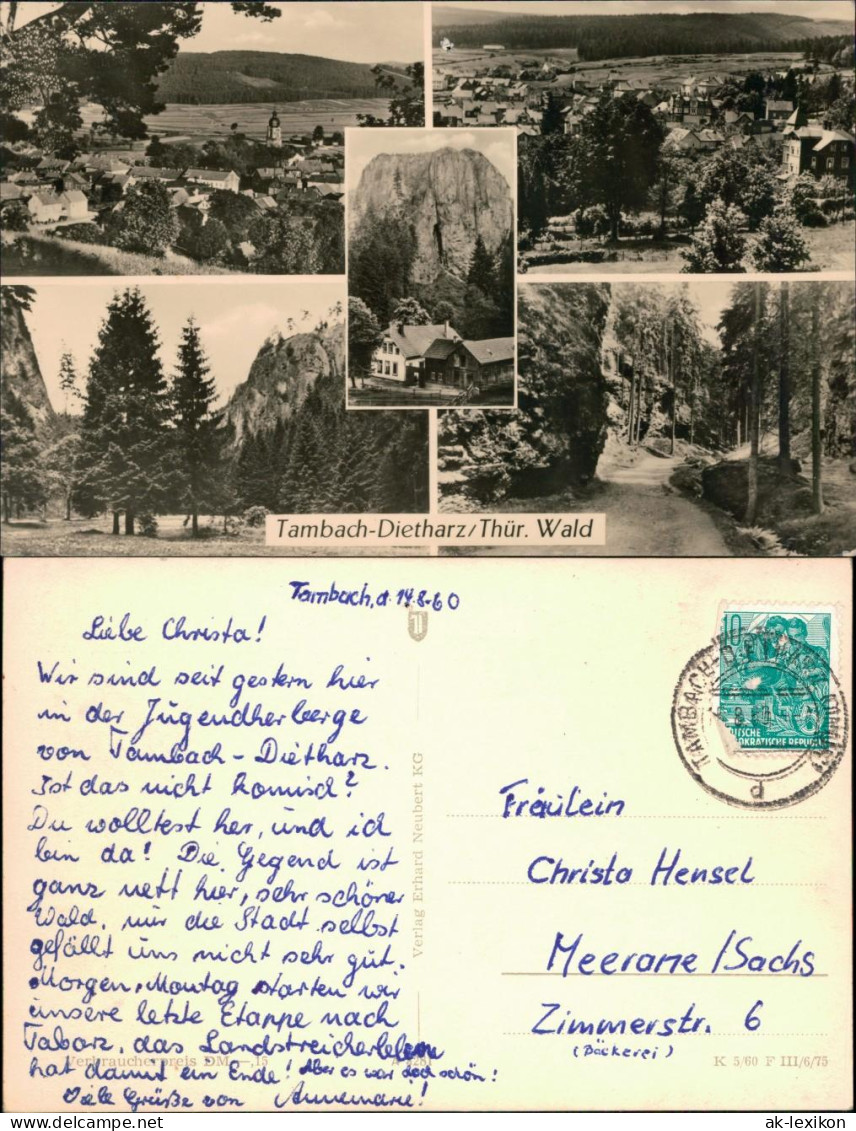 Tambach-Dietharz/Thür. Wald
Tambach, d. 14.8.60
Liebe Christa!
Wir sind seit gestern hier
in der Jugendherberge
von Tambach-Dietharz.
Ist das nicht komisch?
Du wolltest her, und ich
bin da! Die Gegend ist
ganz nett hier, sehr schöner
Wald, nur die Stadt selbst
gefällt uns nicht sehr gut.
Morgen, Montag starten wir
unsere letzte Etappe nach
Tabarz, das Landstreicherleben
hat damit ein Ende! Aber es war doch schön!
Viele Grüße von Annemarie!
Verbraucherpreis DM —,15
Verlag Erhard Neubert KG
10
DEUTSCHE
DEMOKRATISCHE REPUBLIK
TAMBACH-DIETHARZ
d
Fräulein
Christa Hensel
Meerane/Sachs
Zimmerstr. 6
(Bäckerei)
K 5/60 F III/6/75
ak-lexikon.com